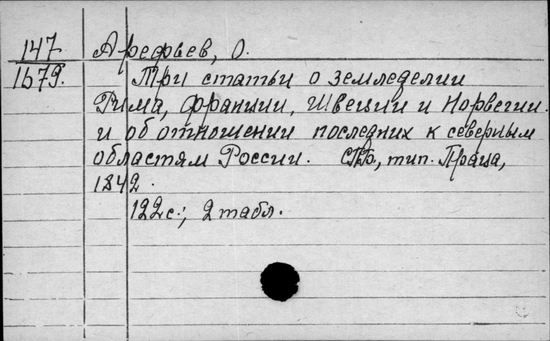 147
1679.
Арефьев, О.
Три статьи о земледелии
Рима, Франции, Швеции и Норвегии
и об отношении последних к северным
областям России. СПБ, тип. Праца,
1842.
122 с.; 2 табл.